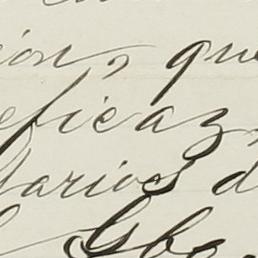 ion, que
eficaz,
tarios d
Gbo